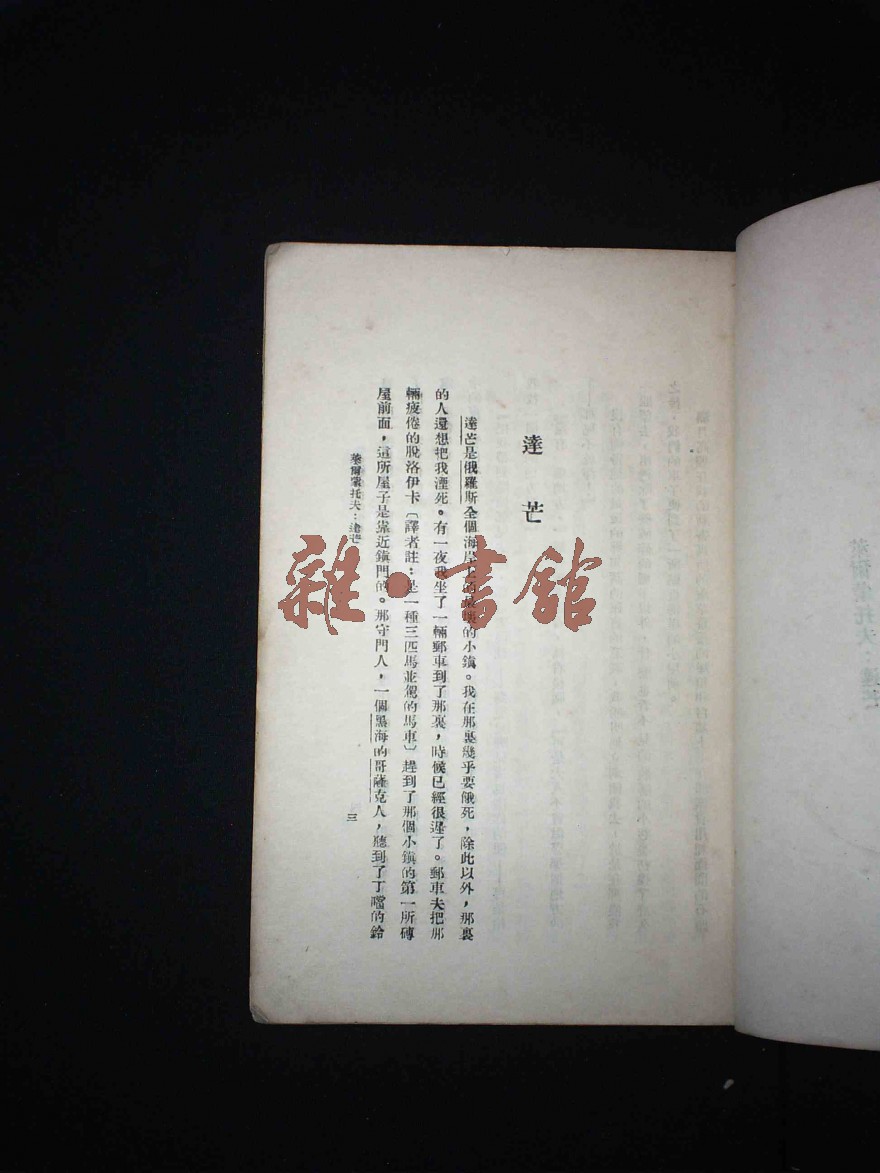 達芒
達芒是俄羅斯全個海岸上的最壞的小鎮。我在那裏幾乎要餓死，除此以外，那裏
的人還想把我溼死。有一夜我坐了一輛郵車到了那裏，時候已經很遲了。郵車夫把那
輛疲倦的脫洛伊卡〔譯者註：是一種三匹馬並駕的馬車〕趕到了那個小鎮的第一所磚
屋前面，這所屋子是靠近鎮門的。那守門人，一個黑海的哥薩克人，聽到了丁噹的鈴
萊爾蒙托夫：達芒
三
雜·書館